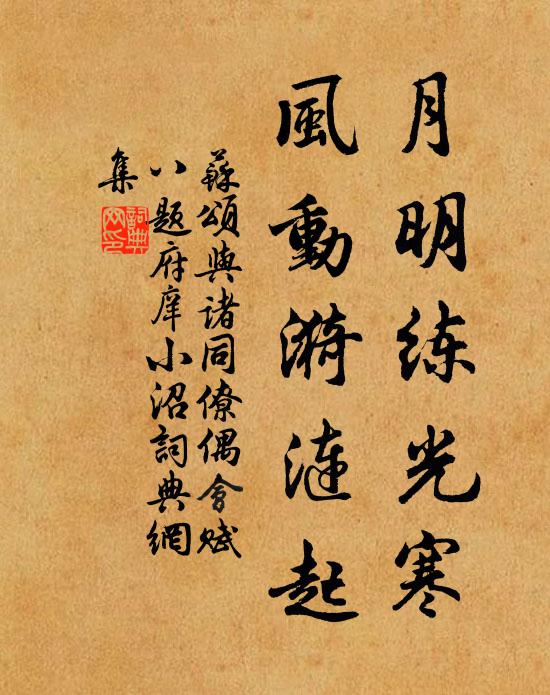 月明练光寒
風動漪涟起
蘇頌與諸同僚偶會赋
八题府庠小沼詞典網
集
詞典網印